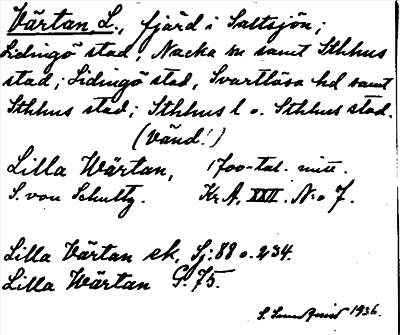 Värtan, L., fjärd i Saltsjön;
Lidingö stad, Nacka sn samt Sthlms
stad; Lidingö stad, Svartlösa hd samt
Sthlms stad; Sthlms l o. Sthlms stad.
(Vänd!)
Lilla Wärtan, 1700-tal. mitt.
S. von Schultz. Kr.A. XXII. N:o 7.
Lilla Värtan ek, Sj: 88 o. 234.
Lilla Wärtan G. 75.
1936.